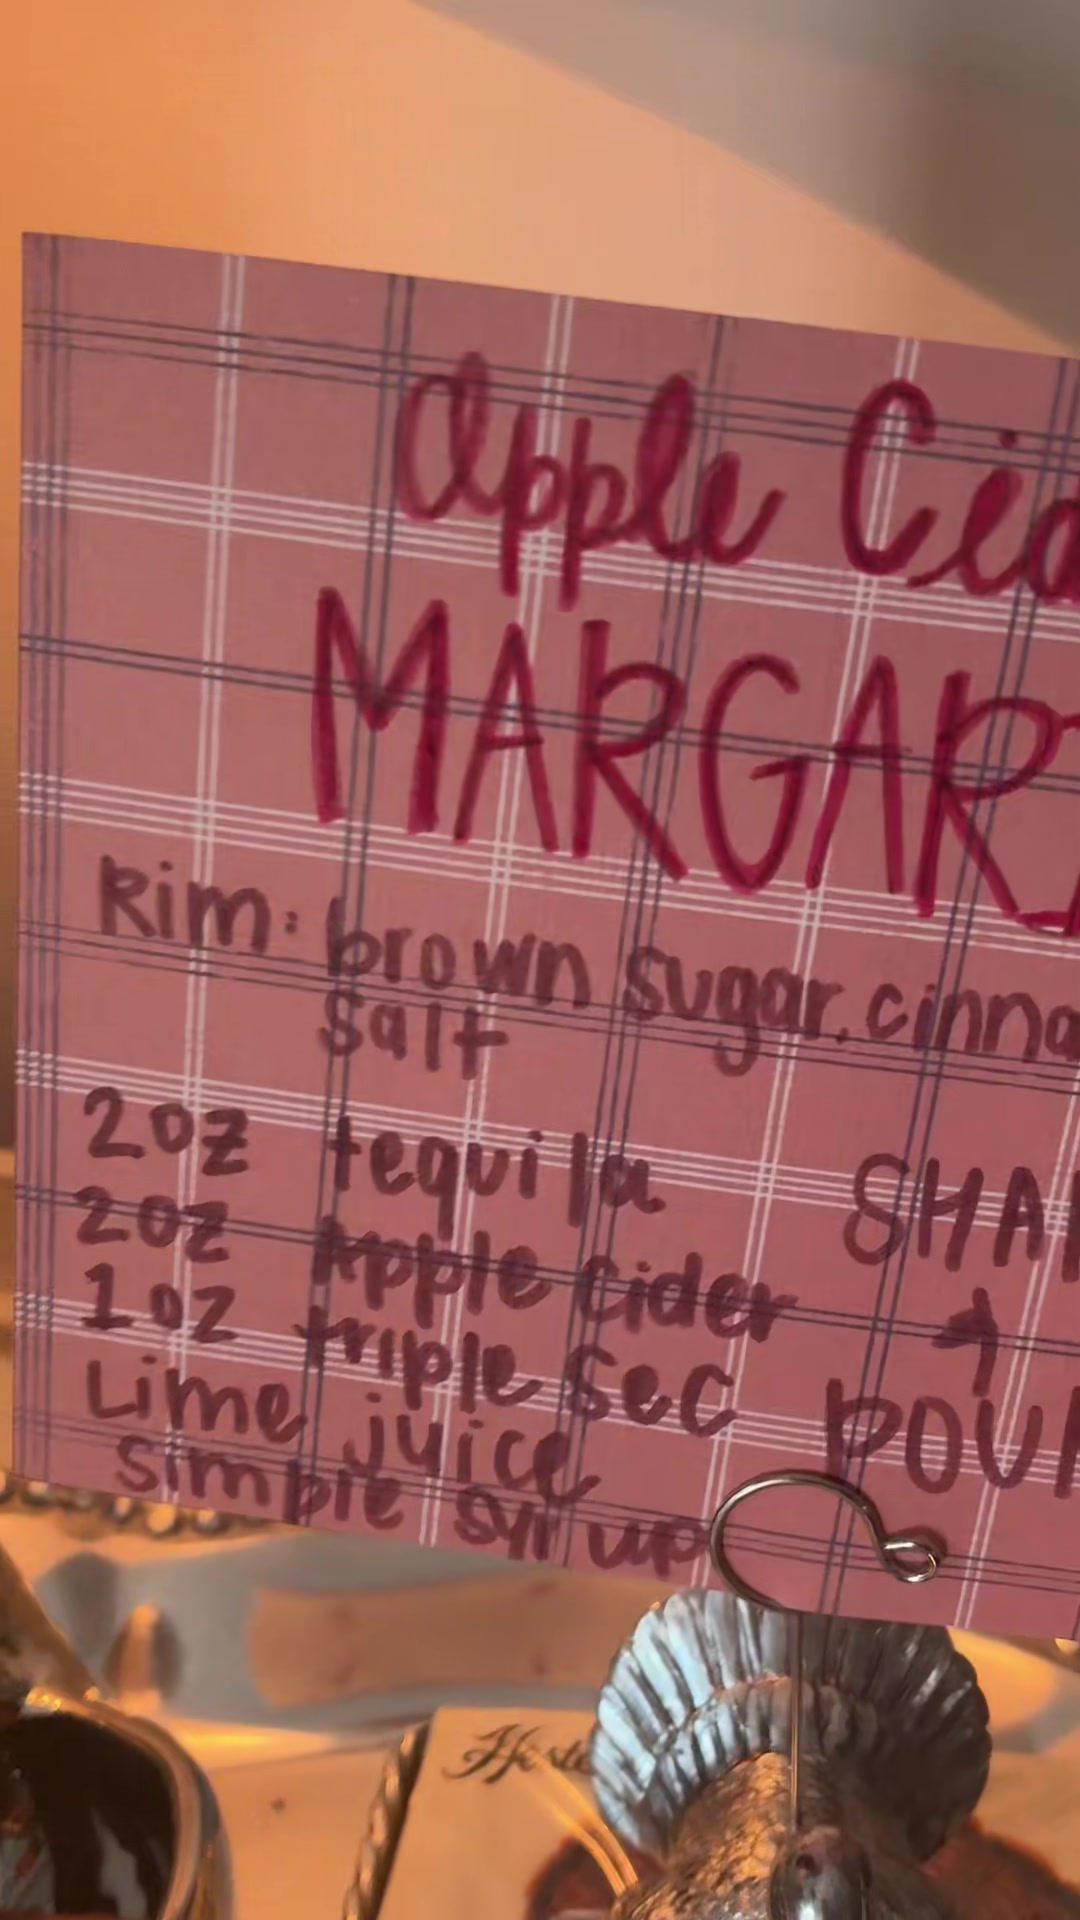 Apple Cid
MARGARI
Rim: brown sugar, cinna
Salt
2oz tequila
2oz Apple cider
1oz triple sec
Lime juice
Simple syrup
SHA
POU